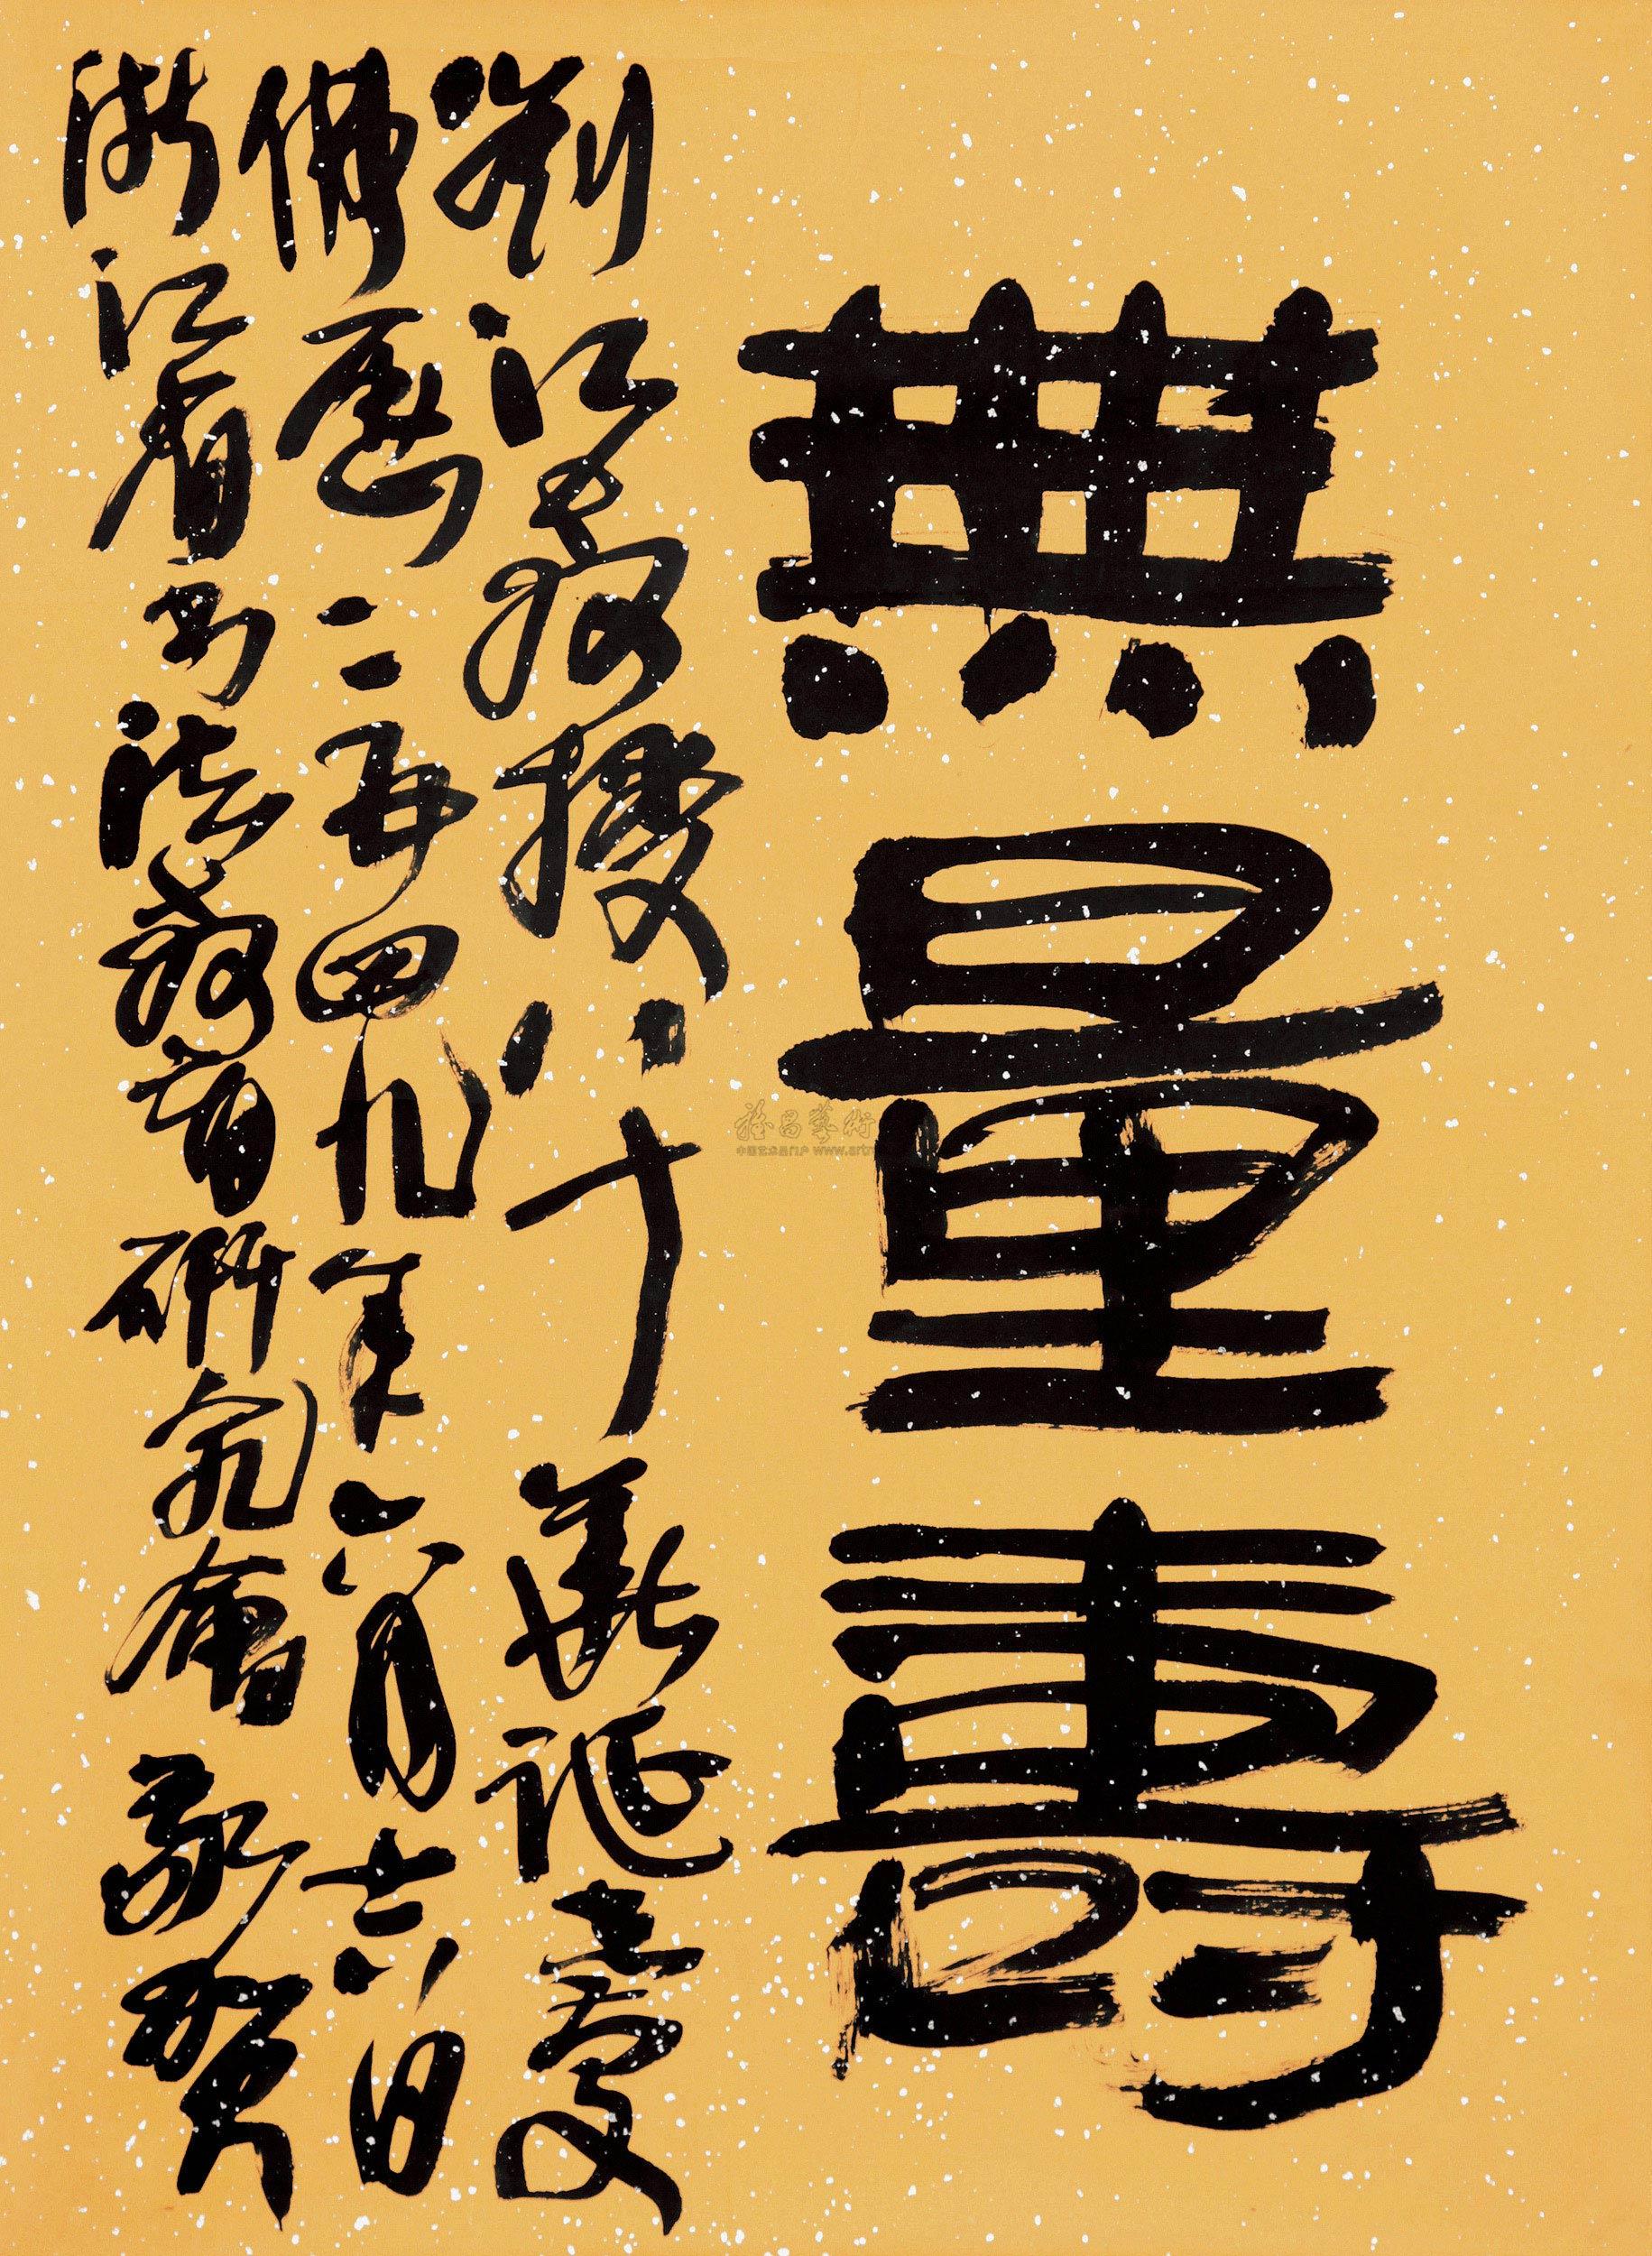 無量壽
劉江教授八十華誕慶
佛歷二五四九年六月十六日
浙江省書法教育研究會敬賀
雅昌藝術